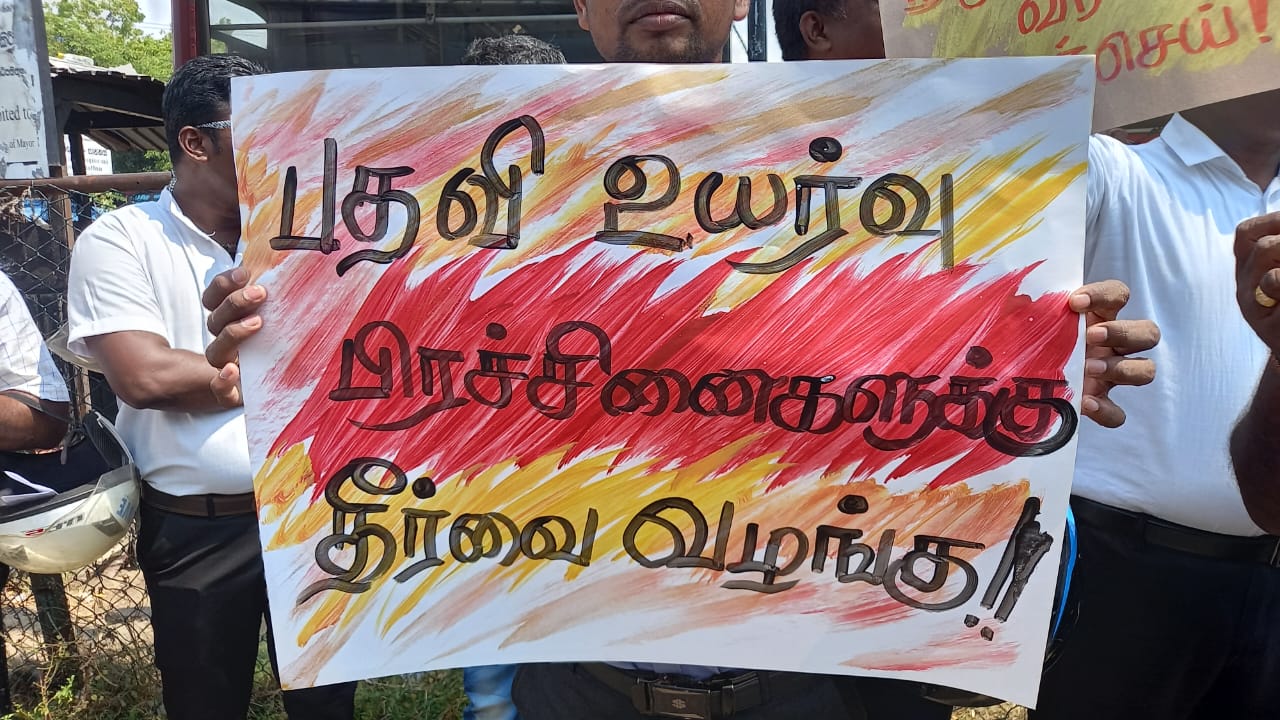 பதவி உயர்வு
பிரச்சினைகளுக்கு
தீர்வை வழங்கு!!
செய்!
ited to
of Mayor